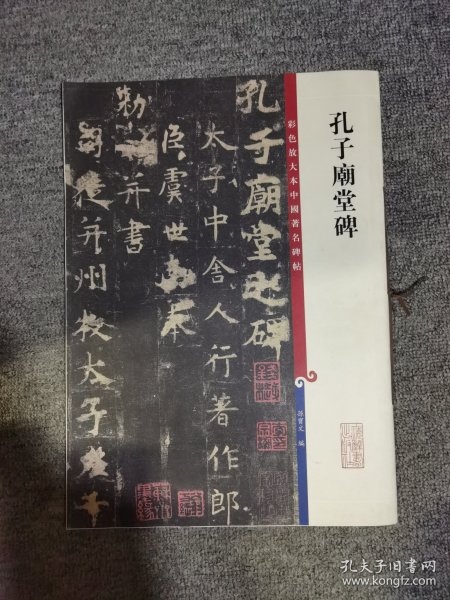 孔子廟堂碑
彩色放大本中國著名碑帖
孫寶文 編
孔子廟堂之碑
太子中舍人行著作郎
臣虞世南奉
勑
并書
司徒并州牧太子
孔夫子旧书网
www.kongfz.com